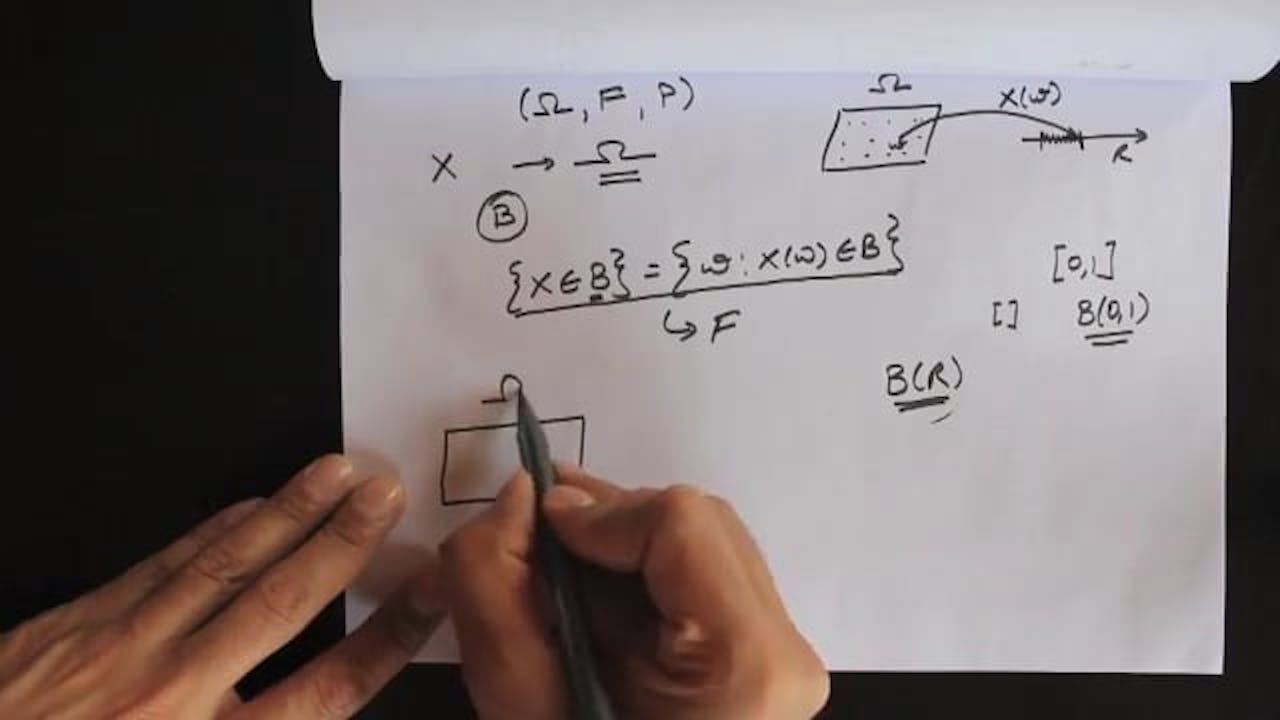 (Ω, F, P)
Ω
X(ω)
X → Ω
ω
R
B
{X ∈ B} = {ω : X(ω) ∈ B}
[0,1]
↳ F
[] B(0,1)
B(R)
Ω